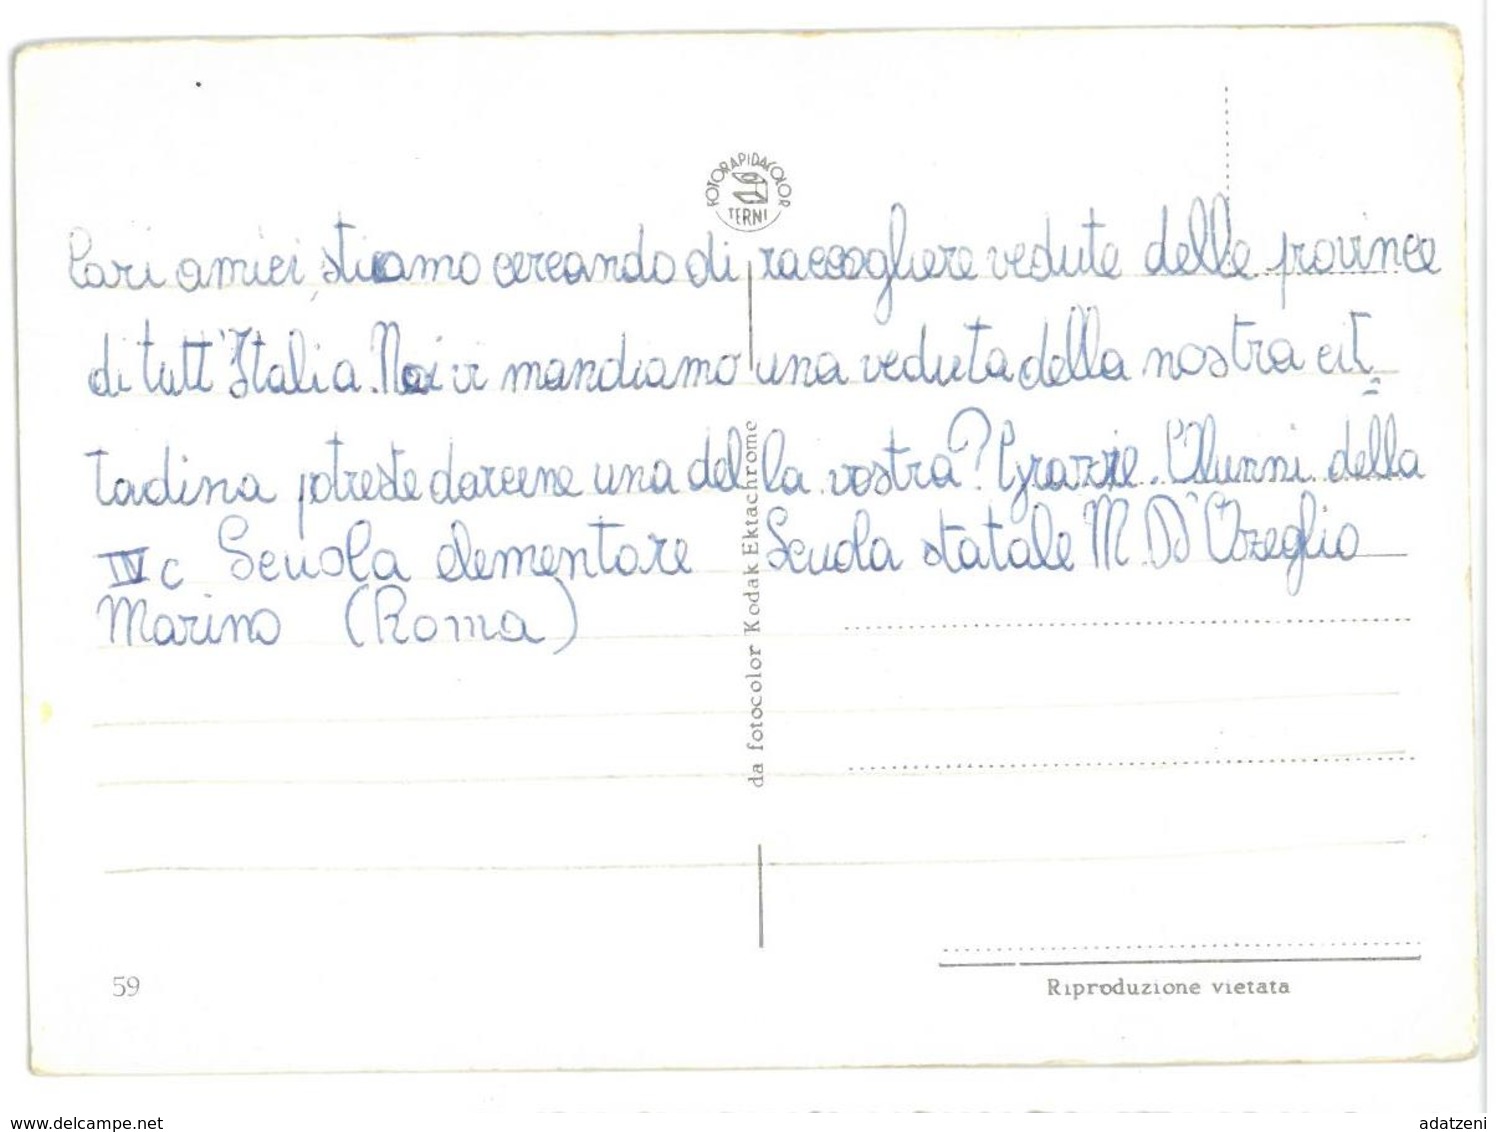 FOTORAPIDACOLOR
TERNI
Cari amici, stiamo cercando di raccogliere vedute delle province
di tutt'Italia. Noi vi mandiamo una veduta della nostra cit
tadina potreste darcene una della vostra? Grazie. Alunni della
IV c Scuola elementare Scuola statale M. D'Azeglio
Marino (Roma)
da fotocolor Kodak Ektachrome
59
Riproduzione vietata
www.delcampe.net
adatzeni